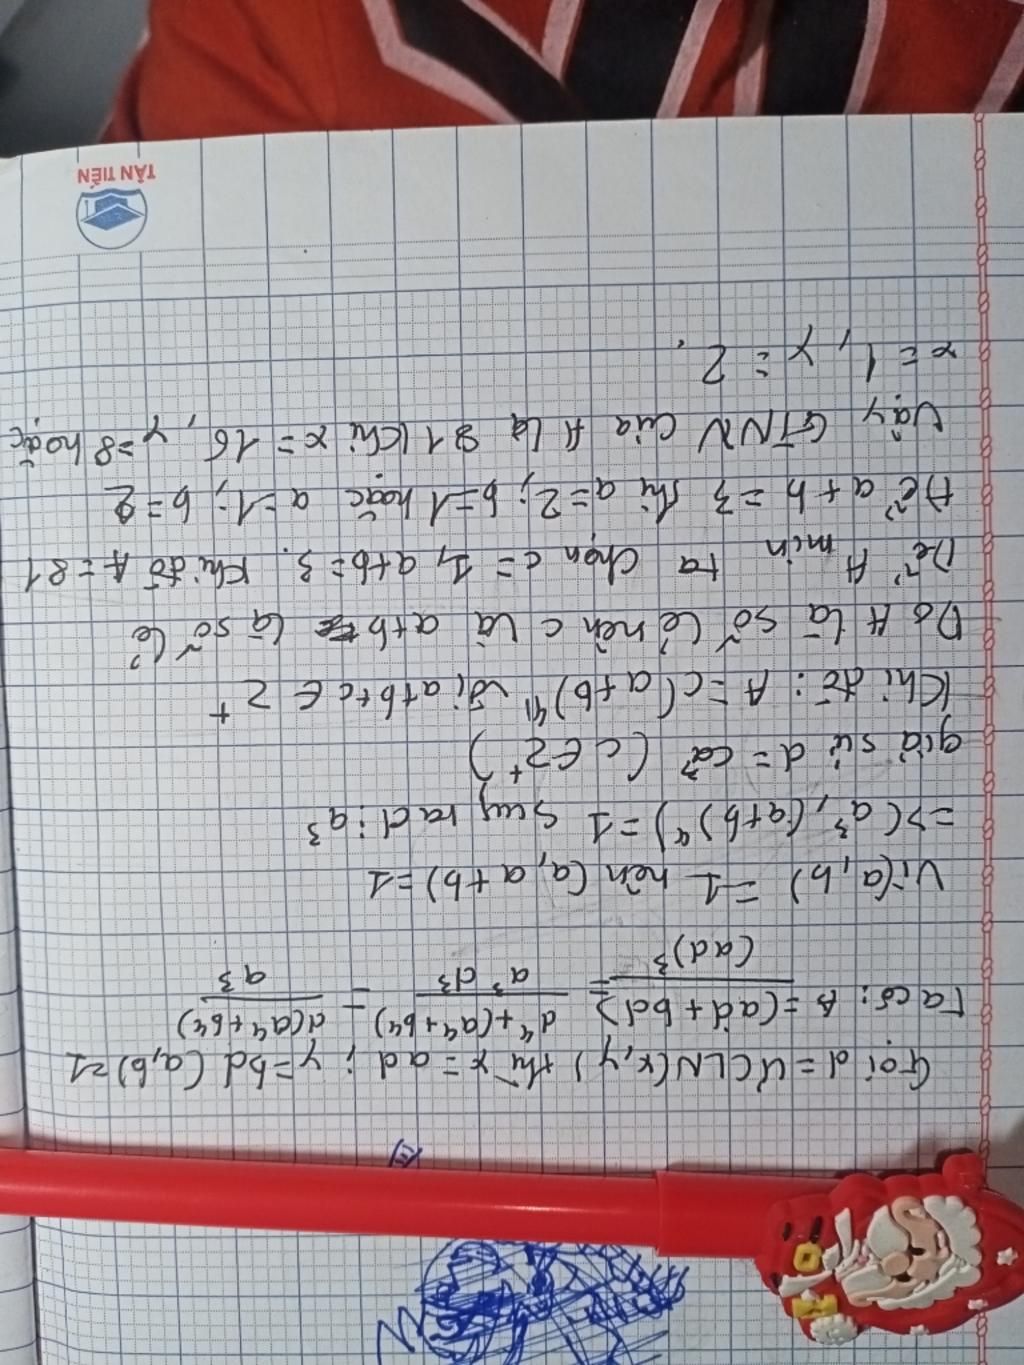 Gọi d = ƯCLN(x, y) thì x = ad ; y = bd (a, b) = 1
Ta có: A = (ad + bd)/(ad)³ = d⁴ + (a⁴ + b⁴)/a³d³ = d(a⁴ + b⁴)/a³
Vì (a, b) = 1 nên (a, a + b) = 1
=> (a³, (a+b)⁴) = 1 Suy ra d ⋮ a³
giả sử d = ca³ (c ∈ Z⁺)
Khi đó: A = c(a+b)⁴ Với a+b+c ∈ Z⁺
Do A là số lẻ nên c là a+b là số lẻ
Để A min ta chọn c = 1, a+b = 3. Khi đó A = 81
Để a + b = 3 thì a = 2; b = 1 hoặc a = 1; b = 2
Vậy GTNN của A là 81 khi x = 16, y = 8 hoặc
x = 1, y = 2.
TÂN TIẾN